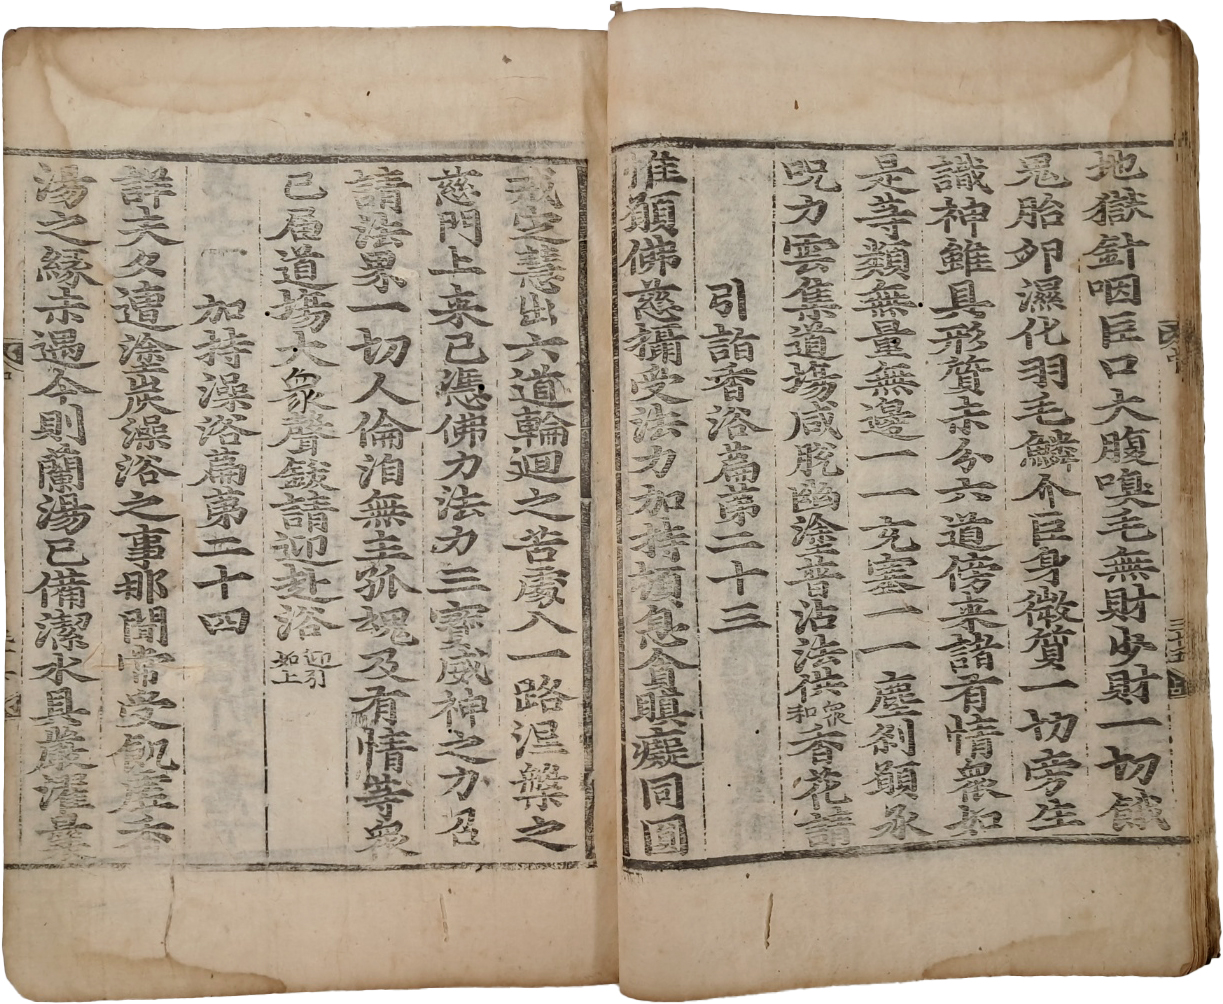 地獄針咽巨口大腹嗅毛無財少財一切餓
鬼胎卵濕化羽毛鱗介巨身微質一切旁生
識神雖具形質未分六道傍来諸有情衆如
是等類無量無邊一一充塞一一塵刹願承
呪力雲集道場咸脫幽塗普沾法供衆和香花請
引詣香浴篇第二十三
惟願佛慈攝受法力加持頓息貪瞋癡同圓
戒定慧出六道輪迴之苦處入一路涅槃之
慈門上来已憑佛力法力三寶威神之力召
請法界一切人倫洎無主孤魂及有情等衆
已屆道場大衆聲鈸請迎赴浴迎引如上
加持澡浴篇第二十四
詳夫久遭塗炭澡浴之事那聞常受飢虛香
湯之縁未遇今則蘭湯已備潔水具嚴濯
三十五